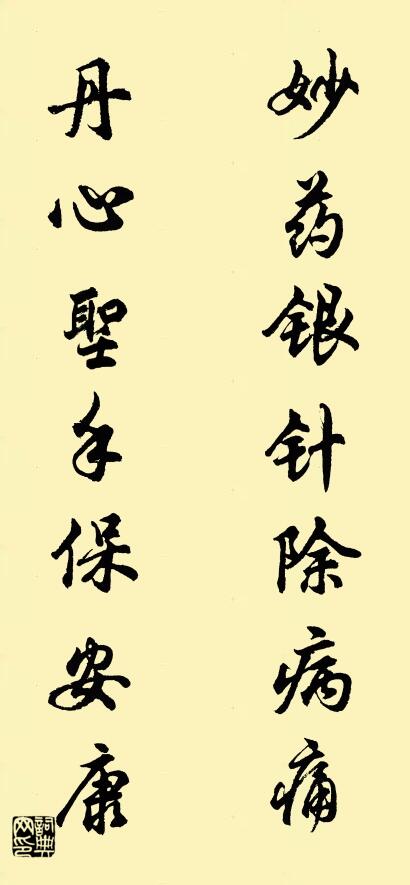 妙药银针除病痛
丹心聖手保安康
词典网印